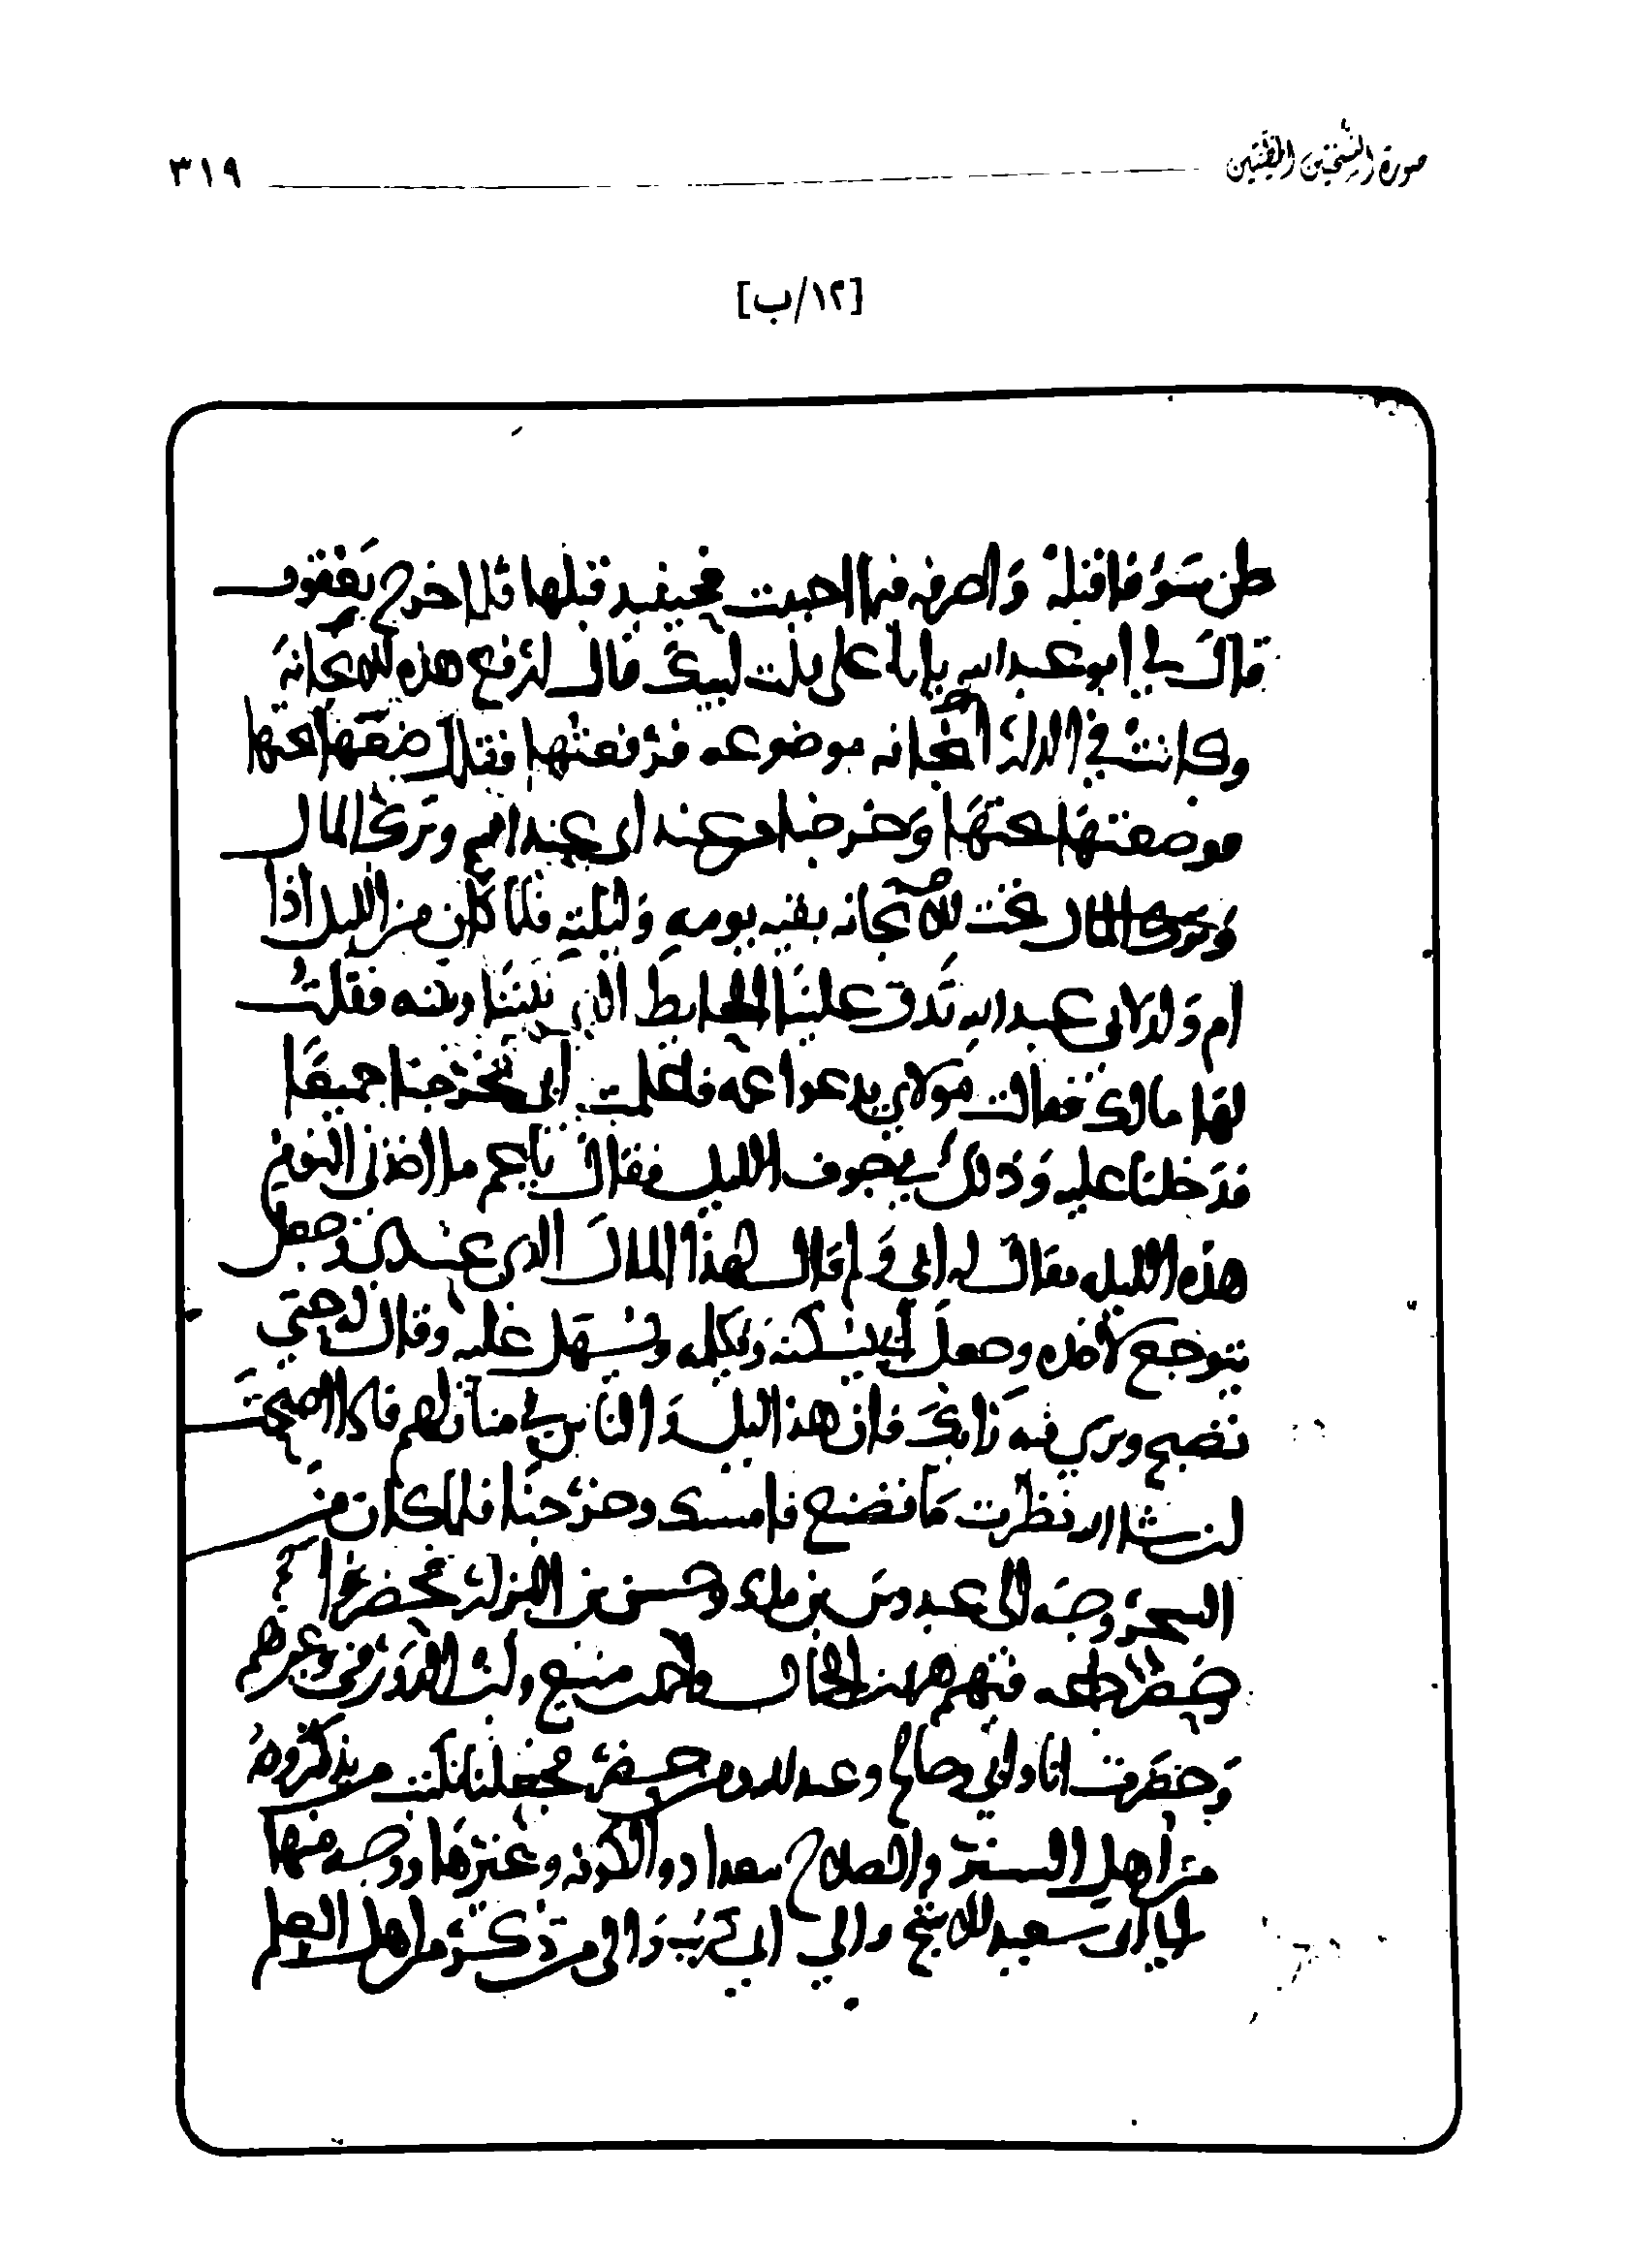 صورة النسختين الخطيتين ٣١٩
[١٢/ب]
ظن سوء فاقبله واصرفه فيما احببت فحينئذ قبلها فلما خرج يعقوب
قال لي ابو عبد الله يابا علي قلت لبيك قال ارفع هذه الانجانه
وكانت في الدار انجانه موضوعه فرفعتها فقال ضعها تحتها
فوضعتها تحتها وخرجنا من عند ابي عبد الله وترك المال
تحت الانجانه بقيه يومه وليلته فلما كان من الليل اذا
ام ولد لابي عبد الله تدق علينا الحايط الذي بيننا وبينه فقلت
لها مالك فقالت مولاي يدعوا عمه فاعلمت ابي فخرجنا جميعا
فدخلنا عليه وذلك في جوف الليل فقال يا عم ما اخذني النوم
هذه الليله فقال له ابي ولم قال لهذا المال الذي عندي وجعل
يتوجع لاخذه وجعل ابي يسكنه ويسهل عليه وقال له حتى
تصبح وترى فيه رايك فان هذا الليل والناس في منازلهم فاذا اصبحت
ان شا الله نظرت ما تصنع فامسك وخرجنا فلما كان من
السحر وجه الى عبدوس بن مالك وحسن بن البزار فحضرا
وحضر جماعه فيهم هرون الحمال واحمد بن منيع وابن الدورقي وغيرهم
وحضرت انا وابي وصالح وعبد الله فجعلنا نكتب من يذكرونه
من اهل الستر والصلاح ببغداد والكوفه وغيرها ووجه منها
الى ابي سعيد الاشج والى ابي كريب والى من ذكر من اهل العلم